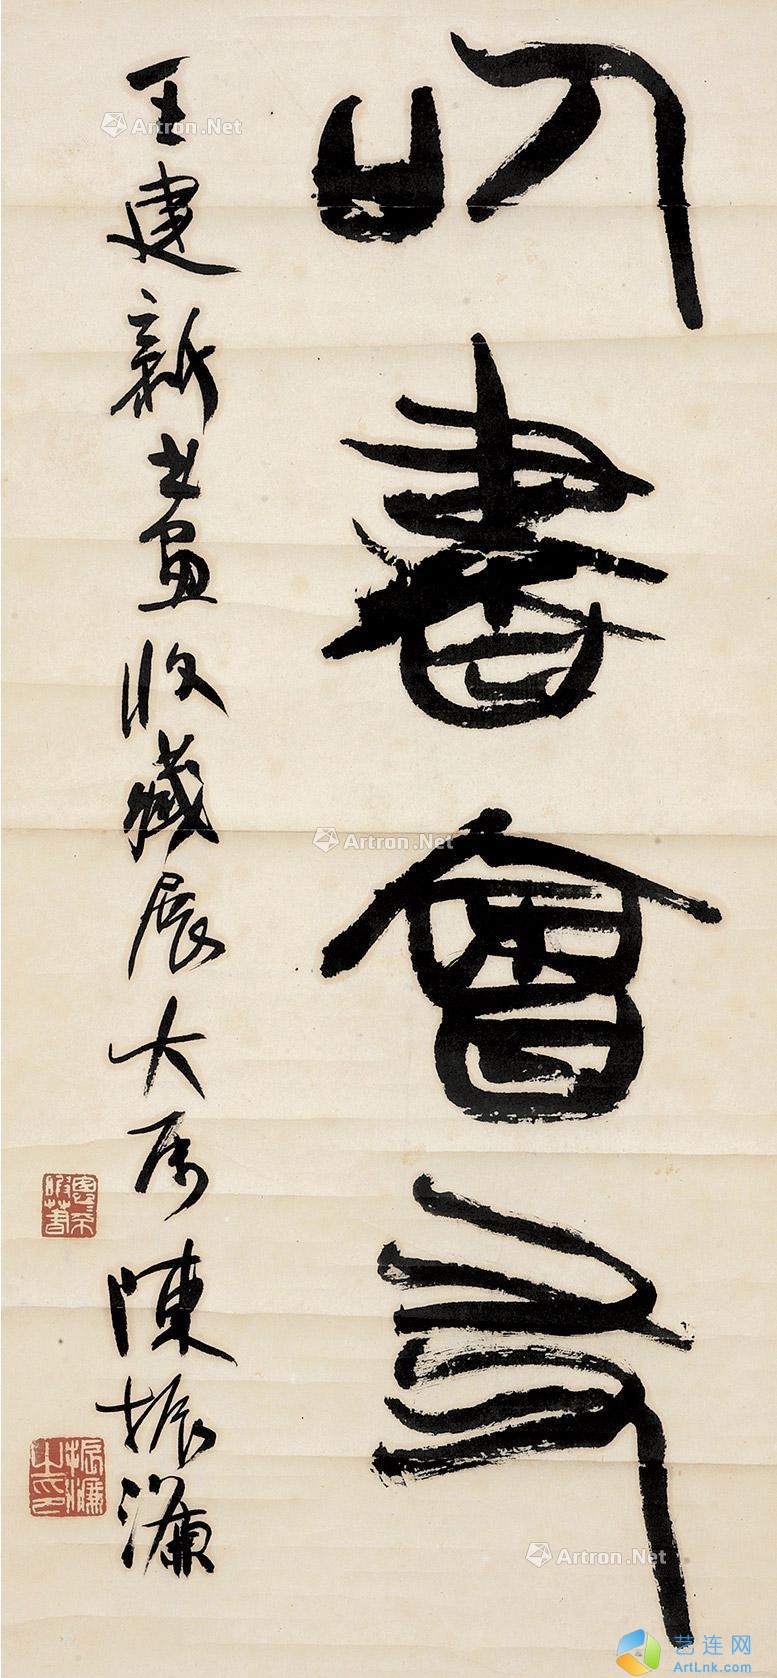 以書會友
王建新書画收藏展大属 陳振濂
振濂之印
Artron.Net
Artron.Net
Artron.Net
艺连网
ArtLnk.com